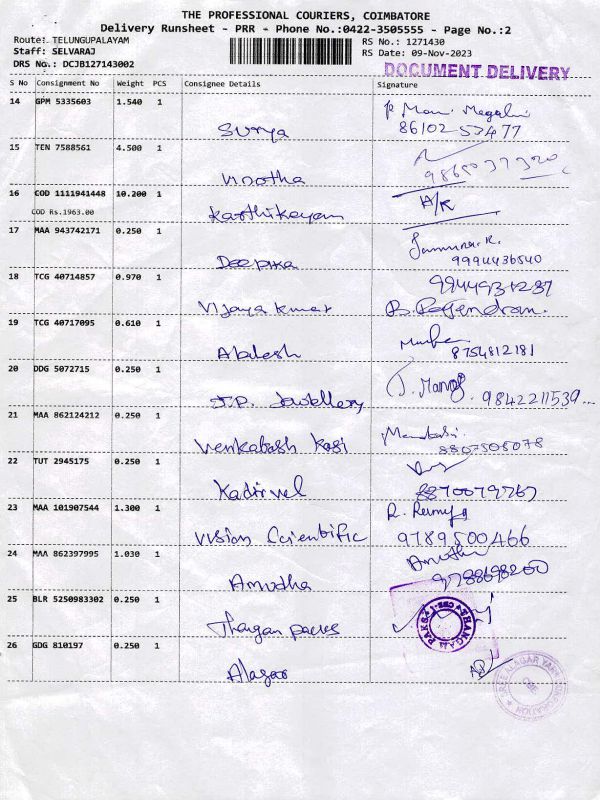 THE PROFESSIONAL COURIERS, COIMBATORE
Delivery Runsheet - PRR - Phone No.:0422-3505555 - Page No.:2
Route: TELUNGUPALAYAM
RS No.: 1271430
Staff: SELVARAJ
RS Date: 09-Nov-2023
DRS No.: DCJB127143002
DOCUMENT DELIVERY
S No Consignment No Weight PCS Consignee Details Signature
14 GPM 5335603 1.540 1
Surya
86102 53477
15 TEN 7588561 4.500 1
Vinotha
16 COD 1111941448 10.200 1
COD Rs.1963.00
Karthikeyan
A/R
17 MAA 943742171 0.250 1
Deepika
9994436540
18 TCG 40714857 0.970 1
Vijaya kumar
9944931287
B. Rajendran.
19 TCG 40717095 0.610 1
8754812181
20 DDG 5072715 0.250 1
J.P. Jewellery
J. Manoj
9842211539...
21 MAA 862124212 0.250 1
8807505078
22 TUT 2945175 0.250 1
Kadirvel
23 MAA 101907544 1.300 1
Vision Scientific
9789500466
24 MAA 862397995 1.030 1
Amudha
9788698200
25 BLR 5250983302 0.250 1
Thangam packs
THANGAM PAKS
26 GDG 810197 0.250 1
Alagar
CBE